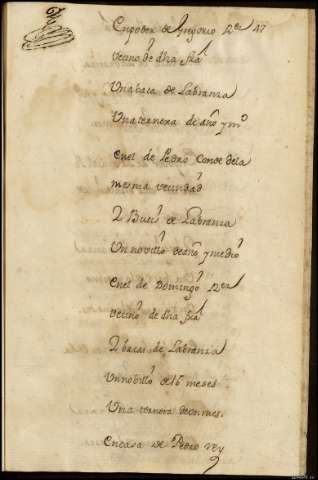 En poder de Gregorio Rez 47
vecino de dha fra
Una baca de Labranza
Una ternera de año y mo
En el de Pedro Conde de la
mesma vecindad
2 Bueis de Labranza
Un novillo de año y medio
En el de Domingo Rez
vecino de dha fra
2 bacas de Labranza
Un novillo de 16 meses
Una ternera de un mes.
En casa de Pedro Rey